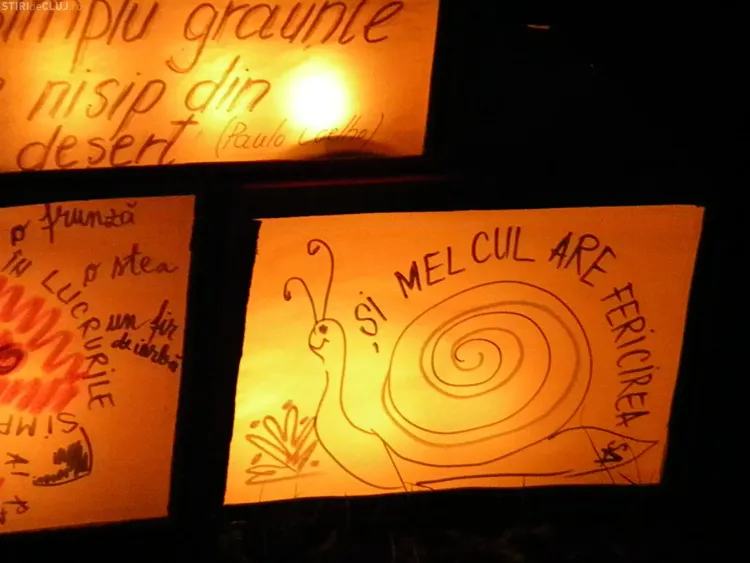 STIRIdeCLUJ.ro
simplu graunte
nisip din
desert
(Paulo Coelho)
o frunză
o stea
un fir
de iarbă
ÎN LUCRURILE
SIMP
ȘI MELCUL ARE FERICIREA SA